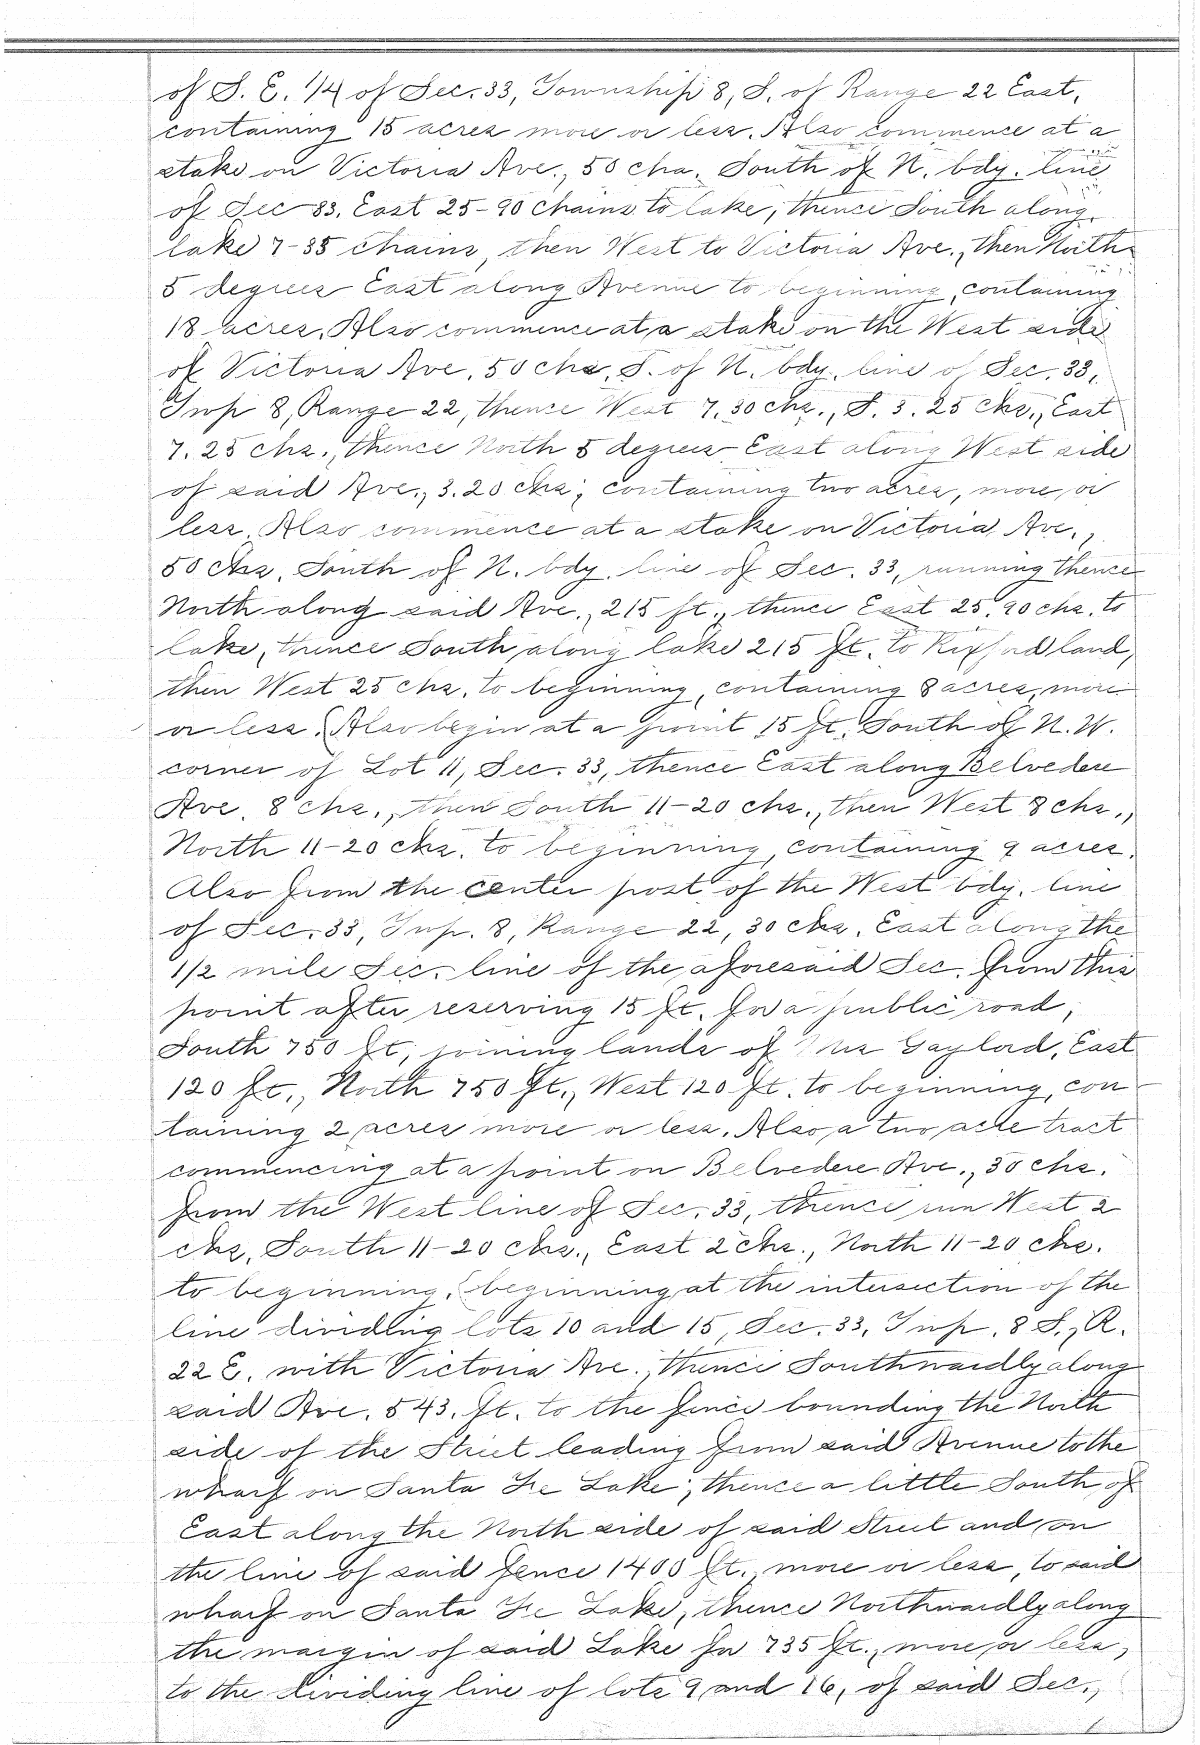 of S. E. 1/4 of Sec. 33, Township 8, S. of Range 22 East,
containing 15 acres more or less. Also commence at a
stake on Victoria Ave., 50 chs. South of N. bdy. line
of Sec 33. East 25-90 chains to lake, thence South along
lake 7-35 chains, then West to Victoria Ave., then North
5 degrees East along Avenue to beginning, containing
18 acres. Also commence at a stake on the West side
of Victoria Ave. 50 chs. S. of N. bdy. line of Sec. 33,
Twp 8, Range 22, thence West 7.30 chs., S. 3.25 chs., East
7.25 chs., thence North 5 degrees East along West side
of said Ave., 3.20 chs; containing two acres, more or
less. Also commence at a stake on Victoria Ave.,
50 chs. South of N. bdy. line of Sec. 33, running thence
North along said Ave., 215 ft., thence East 25.90 chs. to
lake, thence South along lake 215 ft. to Rixford land,
then West 25 chs. to beginning, containing 8 acres, more
or less. (Also begin at a point 15 ft. South of N.W.
corner of Lot 11, Sec. 33, thence East along Belvedere
Ave. 8 chs., then South 11-20 chs., then West 8 chs.,
North 11-20 chs. to beginning, containing 9 acres.
Also from the center post of the West bdy. line
of Sec. 33, Twp. 8, Range 22, 30 chs. East along the
1/2 mile Sec. line of the aforesaid Sec. from this
point after reserving 15 ft. for a public road,
South 750 ft, joining lands of Gaylord, East
120 ft., North 750 ft., West 120 ft. to beginning, con
taining 2 acres more or less. Also a two acre tract
commencing at a point on Belvedere Ave., 30 chs.
from the West line of Sec. 33, thence run West 2
chs, South 11-20 chs., East 2 chs., North 11-20 chs.
to beginning. (beginning at the intersection of the
line dividing lots 10 and 15, Sec. 33, Twp. 8 S., R.
22 E. with Victoria Ave., thence Southwardly along
said Ave. 543. ft. to the fence bounding the North
side of the Street leading from said Avenue to the
wharf on Santa Fe Lake; thence a little South of
East along the North side of said Street and on
the line of said fence 1400 ft., more or less, to said
wharf on Santa Fe Lake, thence Northwardly along
the margin of said Lake for 735 ft., more or less,
to the dividing line of lots 9 and 16, of said Sec.,